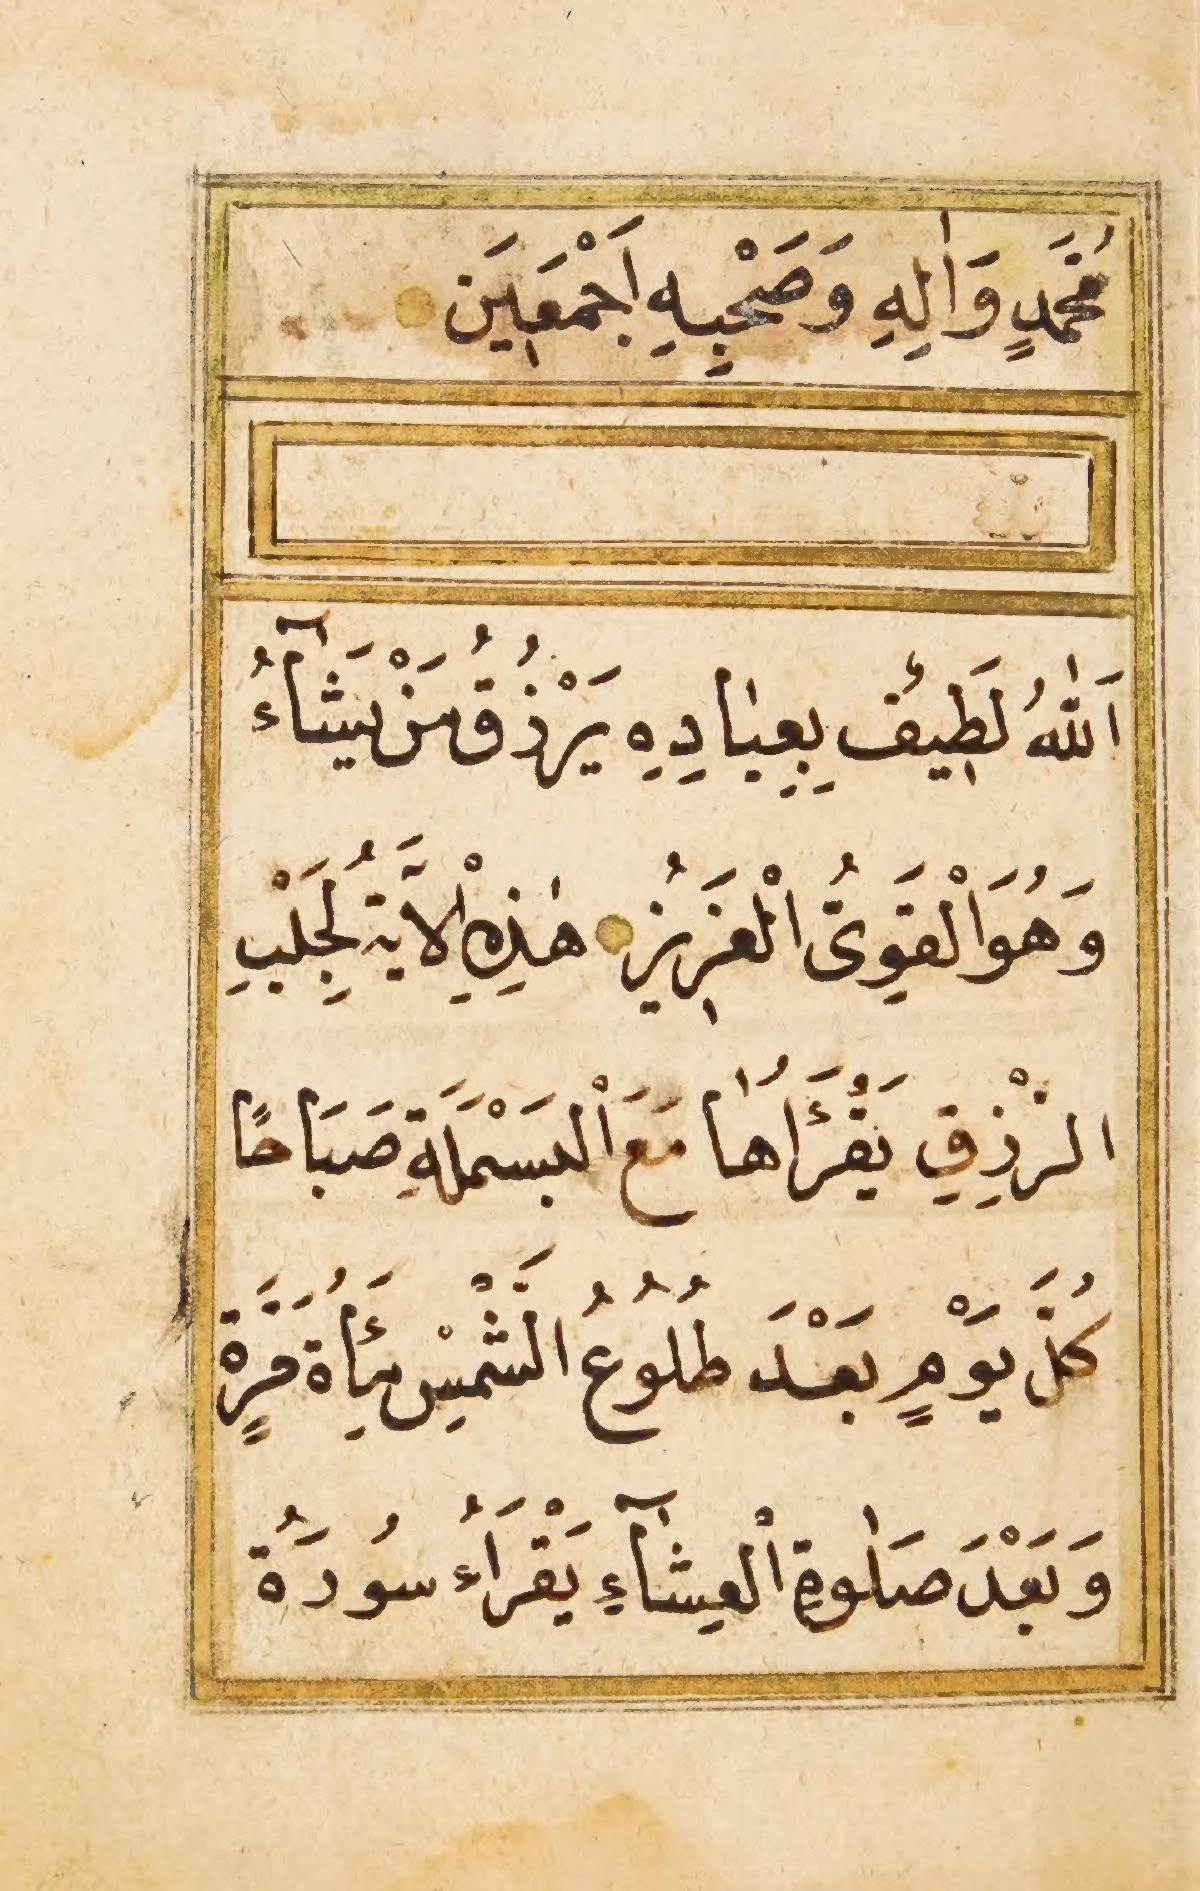 مُحَمَّدٍ وَاٰلِهِ وَصَحْبِهِ اَجْمَعٖينَ
اَللّٰهُ لَطٖيفٌ بِعِبٰادِهِ يَرْزُقُ مَنْ يَشَآءُ
وَهُوَ الْقَوِىُّ الْعَزٖيزُ هٰذِهِ الْاٰيَةُ لِجَلْبِ
الرِّزْقِ يَقْرَئُهٰا مَعَ الْبَسْمَلَةِ صَبَاحًا
كُلَّ يَوْمٍ بَعْدَ طُلُوعُ الشَّمْسِ مِأَةُ مَرَّةٍ
وَبَعْدَ صَلٰوةِ الْعِشَآءِ يَقْرَاُء سُورَةُ